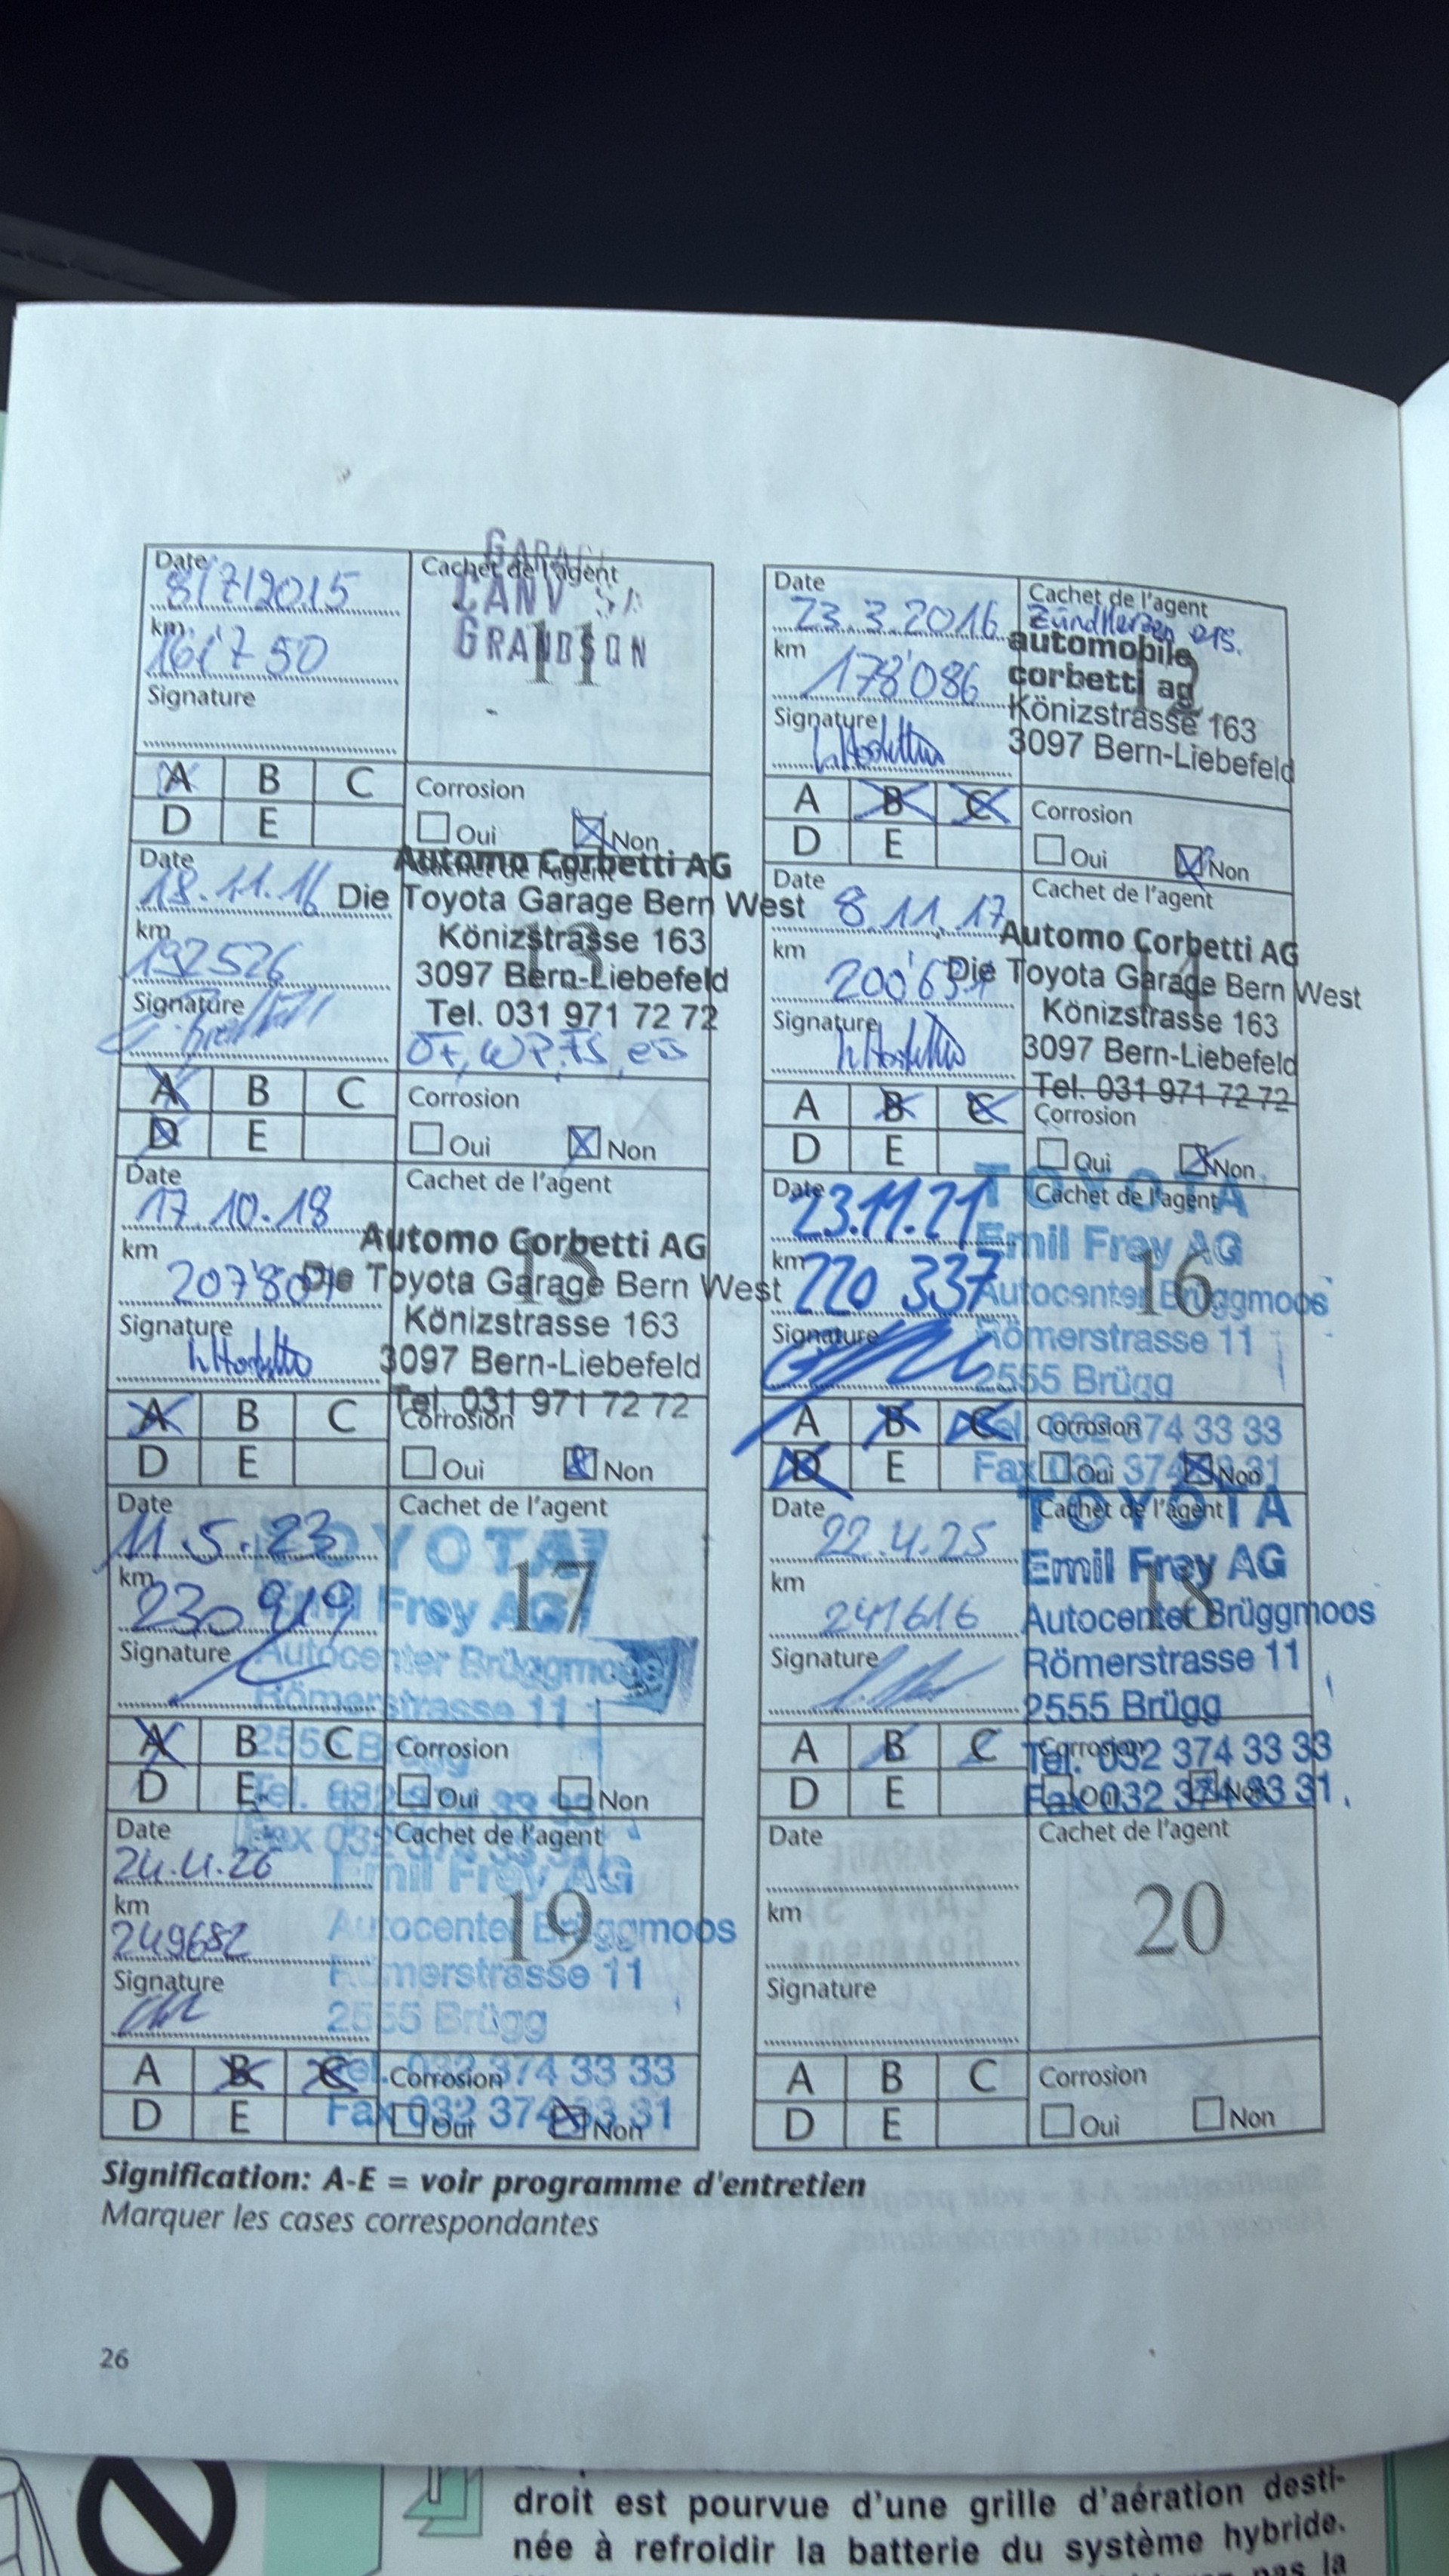 Date
8/7/2015
km
161'750
Signature
Cachet de l'agent
CANV SA
GRANDSON
11
A B C
D E
Corrosion
Oui Non
Date
23.3.2016
km
178'086
Signature
Cachet de l'agent
Zündkerzen ers.
automobile
corbetti ag
Könizstrasse 163
3097 Bern-Liebefeld
12
A B C
D E
Corrosion
Oui Non
Date
18.11.16
km
192526
Signature
Cachet de l'agent
Automo Corbetti AG
Die Toyota Garage Bern West
Könizstrasse 163
3097 Bern-Liebefeld
Tel. 031 971 72 72
13
A B C
D E
Corrosion
Oui Non
Date
8.11.17
km
Signature
Cachet de l'agent
Automo Corbetti AG
Die Toyota Garage Bern West
Könizstrasse 163
3097 Bern-Liebefeld
Tel. 031 971 72 72
14
A B C
D E
Corrosion
Oui Non
Date
17.10.18
km
Signature
Cachet de l'agent
Automo Corbetti AG
Die Toyota Garage Bern West
Könizstrasse 163
3097 Bern-Liebefeld
Tel. 031 971 72 72
15
A B C
D E
Corrosion
Oui Non
Date
23.11.21
km
220 337
Signature
Cachet de l'agent
TOYOTA
Emil Frey AG
Autocenter Brüggmoos
Römerstrasse 11
2555 Brügg
Tel. 032 374 33 33
Fax 032 374 33 31
16
A B C
D E
Corrosion
Oui Non
Date
11.5.23
km
230 919
Signature
Cachet de l'agent
TOYOTA
Emil Frey AG
Autocenter Brüggmoos
Römerstrasse 11
2555 Brügg
Tel. 032 374 33 33
Fax 032 374 33 31
17
A B C
D E
Corrosion
Oui Non
Date
22.4.25
km
241616
Signature
Cachet de l'agent
TOYOTA
Emil Frey AG
Autocenter Brüggmoos
Römerstrasse 11
2555 Brügg
Tel. 032 374 33 33
Fax 032 374 33 31
18
A B C
D E
Corrosion
Oui Non
Date
24.4.26
km
249682
Signature
Cachet de l'agent
Emil Frey AG
Autocenter Brüggmoos
Römerstrasse 11
2555 Brügg
Tel. 032 374 33 33
Fax 032 374 33 31
19
A B C
D E
Corrosion
Oui Non
Date
km
Signature
Cachet de l'agent
20
A B C
D E
Corrosion
Oui Non
Signification: A-E = voir programme d'entretien
Marquer les cases correspondantes
26
droit est pourvue d'une grille d'aération desti-
née à refroidir la batterie du système hybride.
pas la